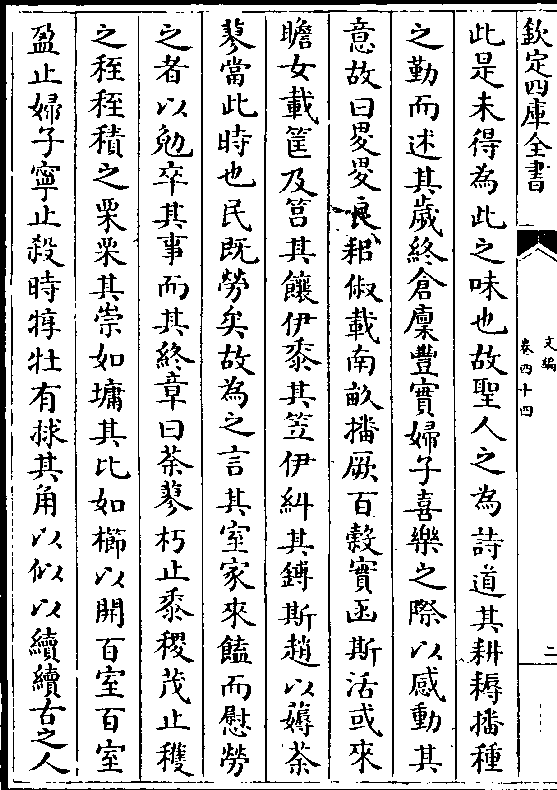 欽定四庫全書
文編
卷四十四
二
此是未得為此之味也故聖人之為詩道其耕耨播種
之勤而述其歲終倉廩豐實婦子喜樂之際以感動其
意故曰畟畟良耜俶載南畝播厥百穀實函斯活或來
瞻女載筐及筥其饟伊黍其笠伊糾其鎛斯趙以薅荼
蓼當此時也民既勞矣故為之言其室家來饁而慰勞
之者以勉卒其事而其終章曰荼蓼朽止黍稷茂止穫
之秷秷積之栗栗其崇如墉其比如櫛以開百室百室
盈止婦子寧止殺時犉牡有捄其角以似以續續古之人